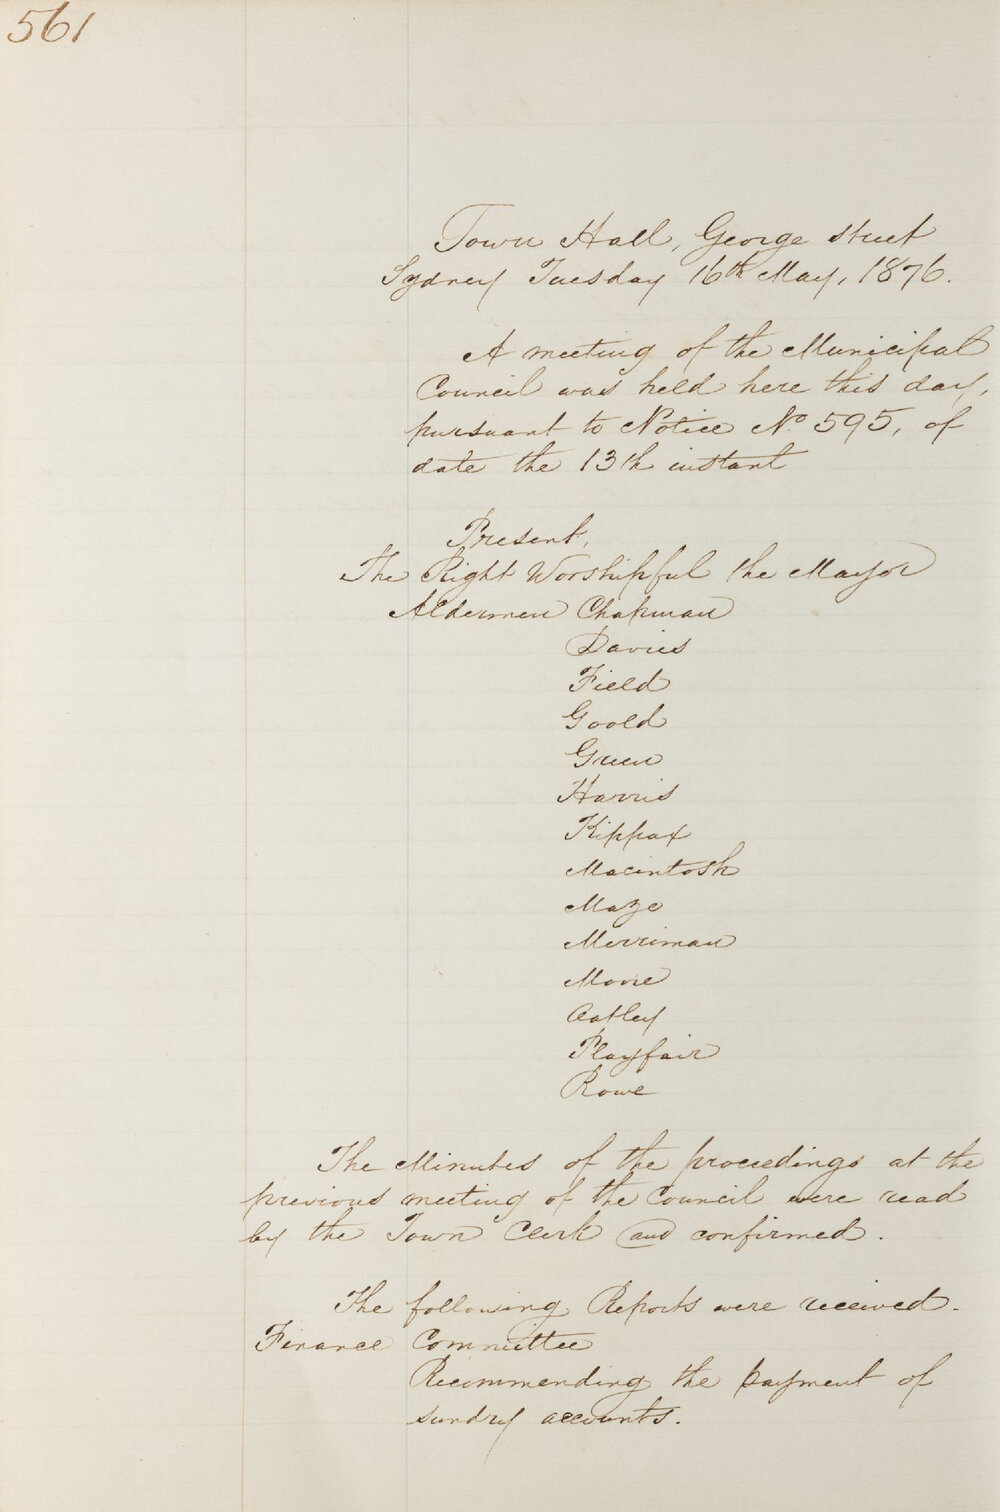 561
Town Hall, George street
Sydney Tuesday 16th May, 1876.
A meeting of the Municipal
Council was held here this day,
pursuant to Notice No 595, of
date the 13th instant
Present,
The Right Worshipful the Mayor
Aldermen Chapman
Davies
Field
Goold
Green
Harris
Kippax
Macintosh
Maze
Merriman
Moore
Oatley
Playfair
Rowe
The Minutes of the proceedings at the
previous meeting of the Council were read
by the Town Clerk and confirmed.
The following Reports were received.
Finance Committee
Recommending the payment of
sundry accounts.